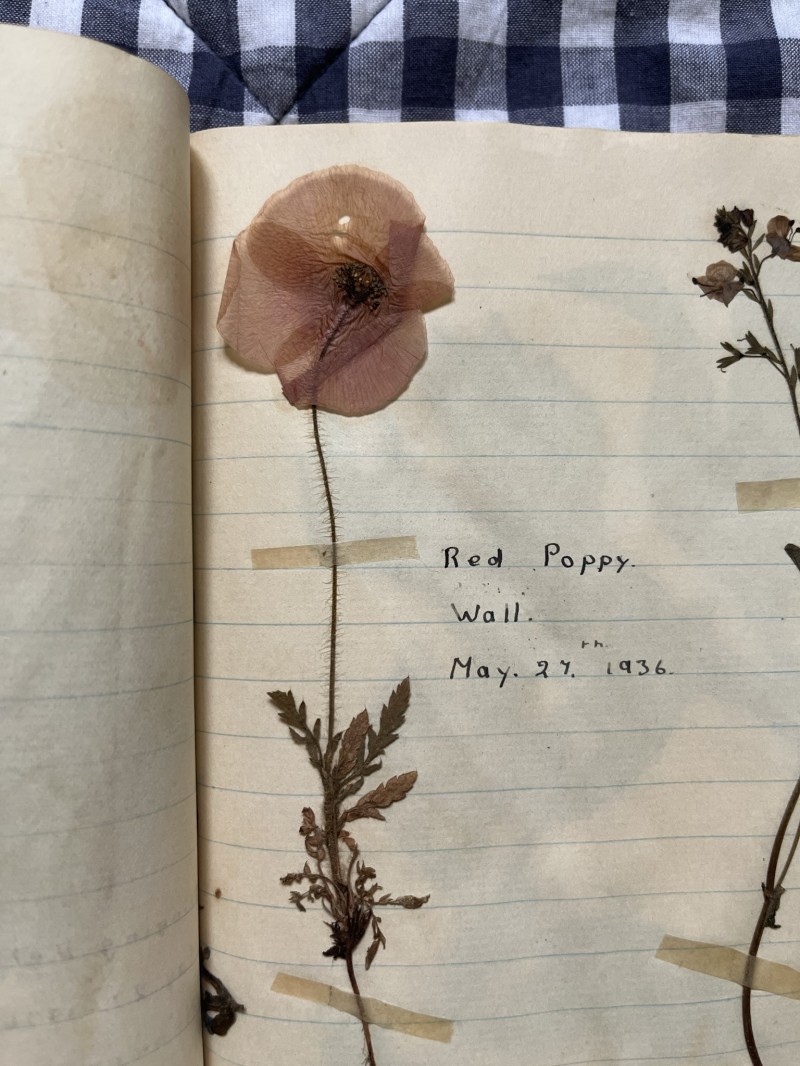 Red Poppy.
Wall.
May. 27.th 1936.